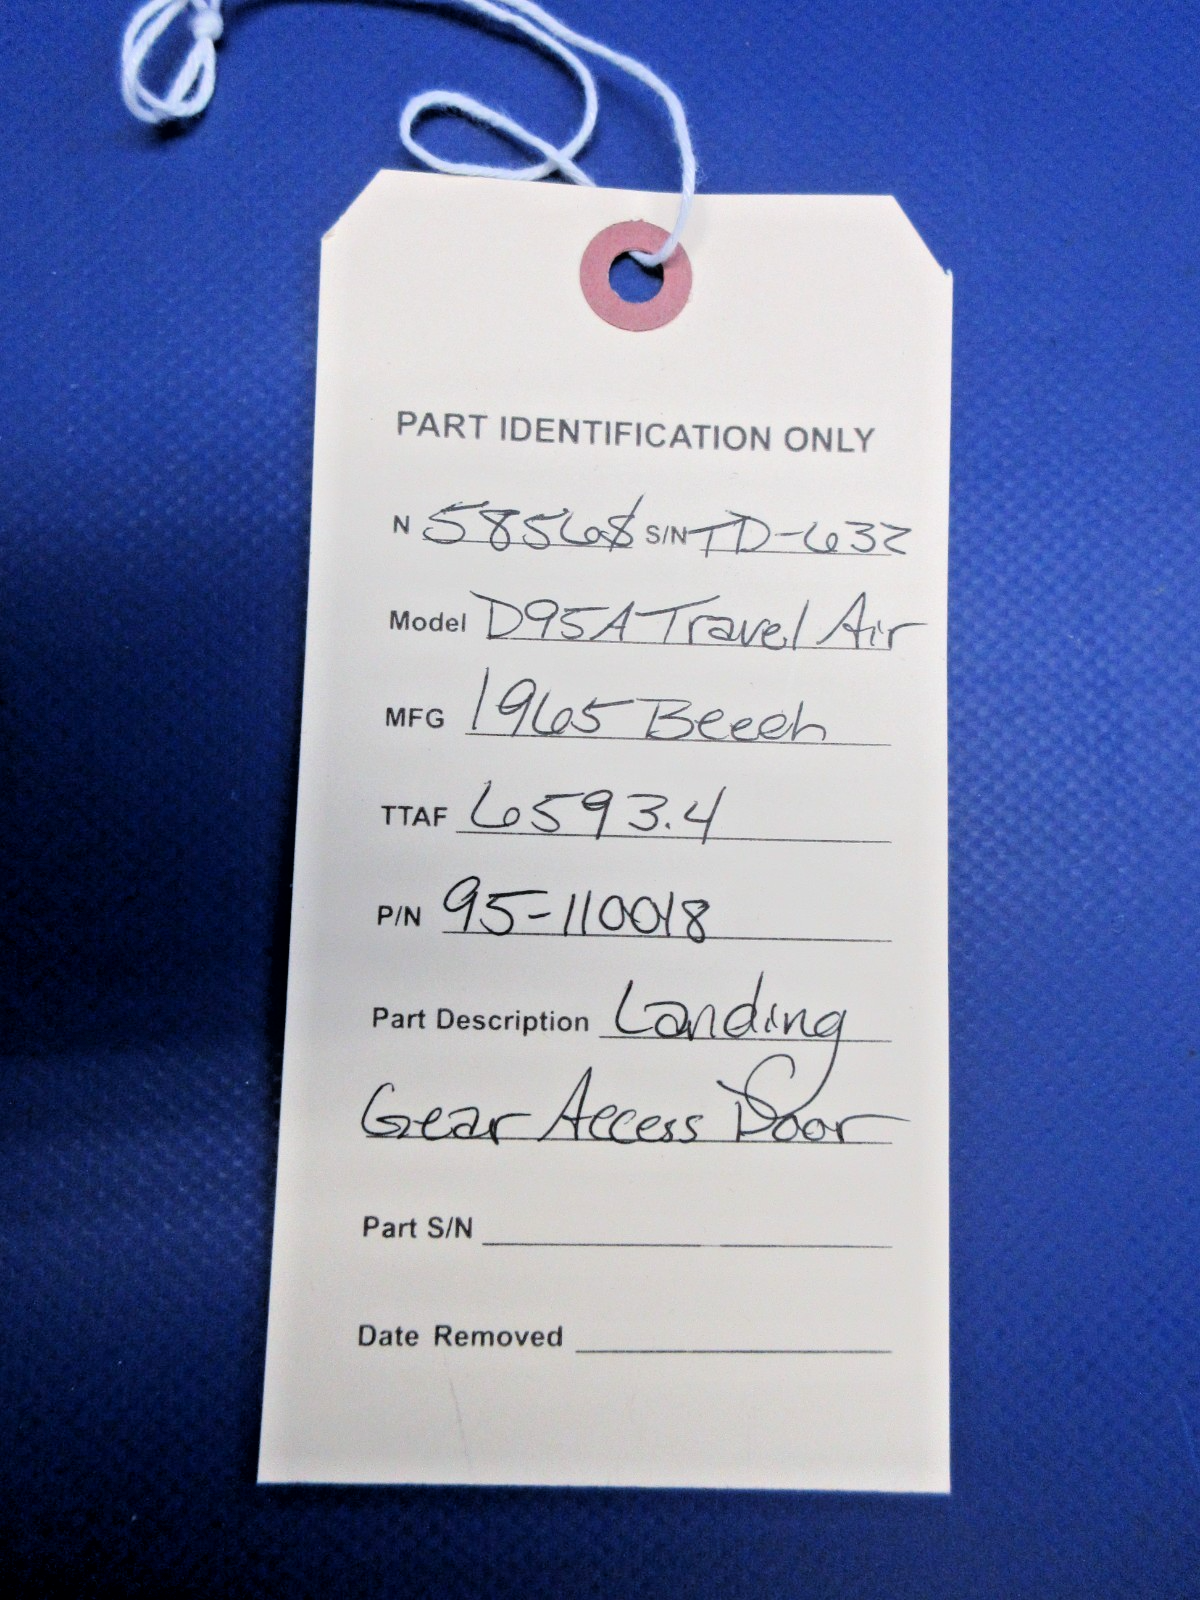 PART IDENTIFICATION ONLY
N 5856S S/N TD-632
Model D95A Travel Air
MFG 1965 Beech
TTAF 6593.4
P/N 95-110018
Part Description Landing
Gear Access Door
Part S/N
Date Removed